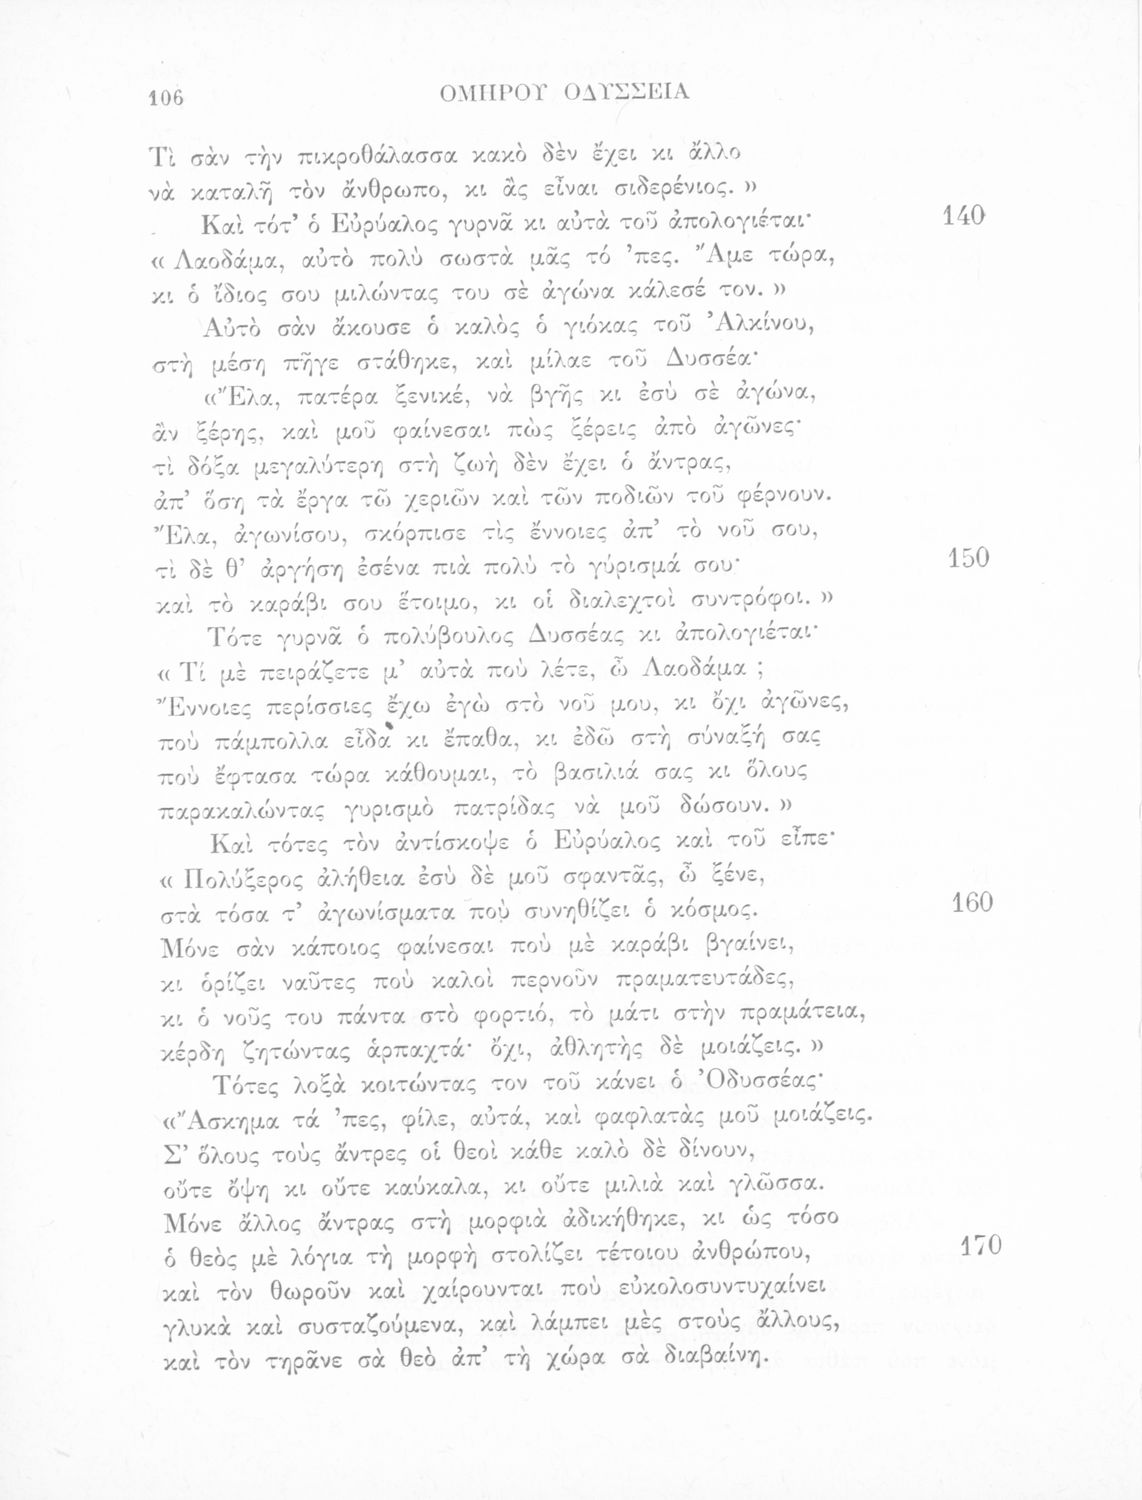 106 ΟΜΗΡΟΥ ΟΔΥΣΣΕΙΑ
Τὶ σὰν τὴν πικροθάλασσα κακὸ δὲν ἔχει κι ἄλλο
νὰ καταλῇ τὸν ἄνθρωπο, κι ἂς εἶναι σιδερένιος. »
Καὶ τότ’ ὁ Εὐρύαλος γυρνᾷ κι αὐτὰ τοῦ ἀπολογιέται· 140
« Λαοδάμα, αὐτὸ πολὺ σωστὰ μᾶς τό ’πες. Ἄμε τώρα,
κι ὁ ἴδιος σου μιλώντας του σὲ ἀγώνα κάλεσέ τον. »
Αὐτὸ σὰν ἄκουσε ὁ καλὸς ὁ γιόκας τοῦ Ἀλκίνου,
στὴ μέση πῆγε στάθηκε, καὶ μίλαε τοῦ Δυσσέα·
« Ἔλα, πατέρα ξενικέ, νὰ βγῇς κι ἐσὺ σὲ ἀγώνα,
ἂν ξέρῃς, καὶ μοῦ φαίνεσαι πὼς ξέρεις ἀπὸ ἀγῶνες·
τὶ δόξα μεγαλύτερη στὴ ζωὴ δὲν ἔχει ὁ ἄντρας,
ἀπ’ ὅση τὰ ἔργα τῶ χεριῶν καὶ τῶν ποδιῶν τοῦ φέρνουν.
Ἔλα, ἀγωνίσου, σκόρπισε τὶς ἔννοιες ἀπ’ τὸ νοῦ σου,
τὶ δὲ θ’ ἀργήσῃ ἐσένα πιὰ πολὺ τὸ γύρισμά σου· 150
καὶ τὸ καράβι σου ἕτοιμο, κι οἱ διαλεχτοὶ συντρόφοι. »
Τότε γυρνᾷ ὁ πολύβουλος Δυσσέας κι ἀπολογιέται·
« Τί μὲ πειράζετε μ’ αὐτὰ ποὺ λέτε, ὦ Λαοδάμα ;
Ἔννοιες περίσσιες ἔχω ἐγὼ στὸ νοῦ μου, κι ὄχι ἀγῶνες,
ποὺ πάμπολλα εἶδα κι ἔπαθα, κι ἐδῶ στὴ σύναξή σας
ποὺ ἔφτασα τώρα κάθουμαι, τὸ βασιλιά σας κι ὅλους
παρακαλώντας γυρισμὸ πατρίδας νὰ μοῦ δώσουν. »
Καὶ τότες τὸν ἀντίσκοψε ὁ Εὐρύαλος καὶ τοῦ εἶπε·
« Πολύξερος ἀλήθεια ἐσὺ δὲ μοῦ σφαντᾷς, ὦ ξένε,
στὰ τόσα τ’ ἀγωνίσματα ποὺ συνηθίζει ὁ κόσμος. 160
Μόνε σὰν κάποιος φαίνεσαι ποὺ μὲ καράβι βγαίνει,
κι ὁρίζει ναῦτες ποὺ καλοὶ περνοῦν πραματευτάδες,
κι ὁ νοῦς του πάντα στὸ φορτιό, τὸ μάτι στὴν πραμάτεια,
κέρδη ζητώντας ἁρπαχτά· ὄχι, ἀθλητὴς δὲ μοιάζεις. »
Τότες λοξὰ κοιτώντας τον τοῦ κάνει ὁ Ὀδυσσέας·
« Ἄσκημα τά ’πες, φίλε, αὐτά, καὶ φαφλατὰς μοῦ μοιάζεις.
Σ’ ὅλους τοὺς ἄντρες οἱ θεοὶ κάθε καλὸ δὲ δίνουν,
οὔτε ὄψη κι οὔτε καύκαλα, κι οὔτε μιλιὰ καὶ γλῶσσα.
Μόνε ἄλλος ἄντρας στὴ μορφιὰ ἀδικήθηκε, κι ὡς τόσο
ὁ θεὸς μὲ λόγια τὴ μορφὴ στολίζει τέτοιου ἀνθρώπου, 170
καὶ τὸν θωροῦν καὶ χαίρουνται ποὺ εὐκολοσυντυχαίνει
γλυκὰ καὶ συσταζούμενα, καὶ λάμπει μὲς στοὺς ἄλλους,
καὶ τὸν τηρᾶνε σὰ θεὸ ἀπ’ τὴ χώρα σὰ διαβαίνῃ.